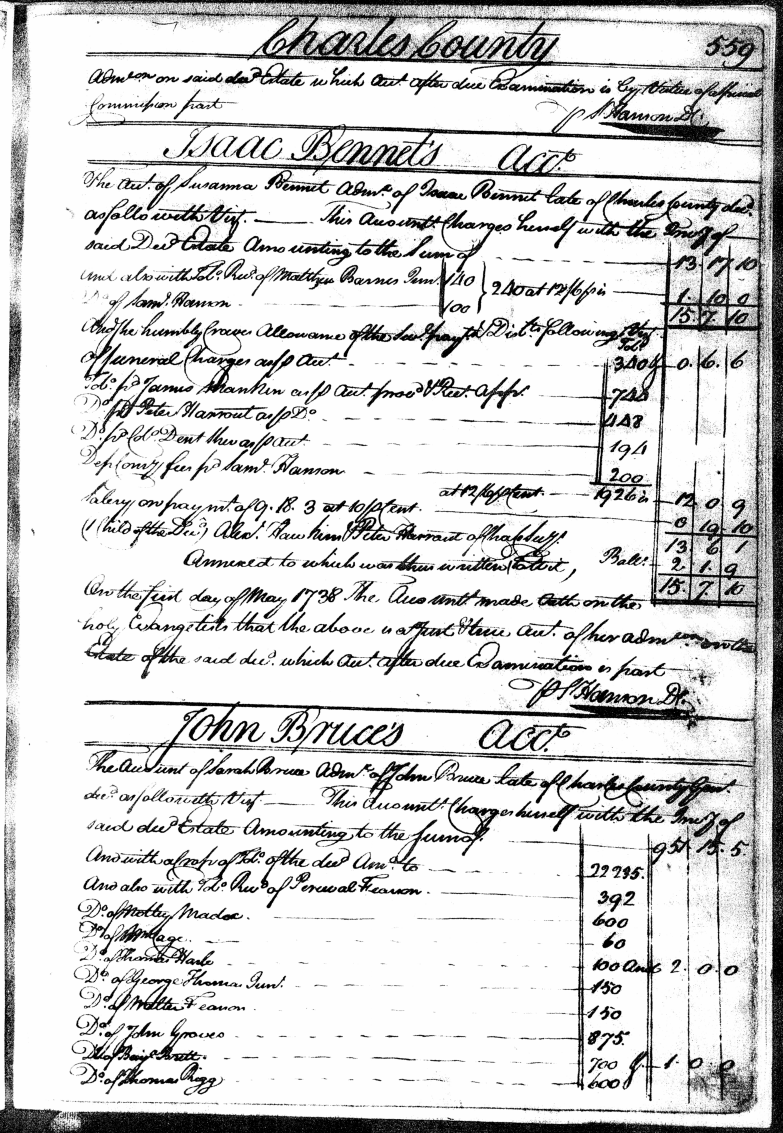 Charles County 559
Adm.on on said dec.d Estate which Acc.t after due Examination is by Virtue of a Special
Commission past
p S Hanson D.C.
Isaac Bennet's Acc.t
The Acc.t of Susanna Bennet Adm.x of Isaac Bennet late of Charles County dec.d
as followeth Viz.t This Accountt. Charges herself with the Inv.ry of
said Dec.d Estate Amounting to the Sum of 13 17 10
And also with Tob.o Rec.d of Matthew Barnes Jun.r 140
D.o of Sam.l Hanson 100 } 240 at 12/6 p is 1 10 0
15 7 10
And she humbly Craves Allowance of the Sev.l paym.ts & Disb.ts following Viz.t
Tob.o
Of Funeral Charges as p Acc.t 340 & 0 6 6
Tob.o p.d James Mankin as p Acc.t prov.d & Rec.t App.r 744
D.o p.d Peter Harrant as p D.o 448
D.o p.d Col.o Dent Sher as p Acc.t 194
Dep Com.ry fees p.d Sam.l Hanson 200
at 12/6 p Cent 1926 is 12 0 9
Salery on paym.t of 9. 18. 3 at 10 p Cent 0 19 10
13 6 1
(1 Child of the Dec.d) Alex.r Hawkins & Peter Harrant of Chas Sur.s
Ball.a 2 1 9
Annexed to which was thus written (to wit,
15 7 10
On the first day of May 1738 The Accountt. made Oath on the
holy Evangelists that the above is a Just & true Acc.t of her adm.on on the
Estate of the said dec.d which Acc.t after due Examination is past
p S Hanson D.C.
John Bruce's Acc.t
The Account of Sarah Bruce Adm.x of John Bruce late of Charles County
dec.d as followeth Viz.t This Accountt. Charges herself with the Inv.ry of
said dec.d Estate Amounting to the Sum of 951 15 5
And with a crop of Tob.o of the dec.d Am.o to 22235
And also with Tob.o Rec.d of Percival Fearson 392
D.o of Notley Maddox 600
D.o of 60
D.o of Thomas Harle 100 And 2 0 0
D.o of George Thomas Jun.r 150
D.o of Walter Fearson 150
D.o of John Groves 875
D.o of Benj.n 700 & 1 0 0
D.o of Thomas Rigg 600